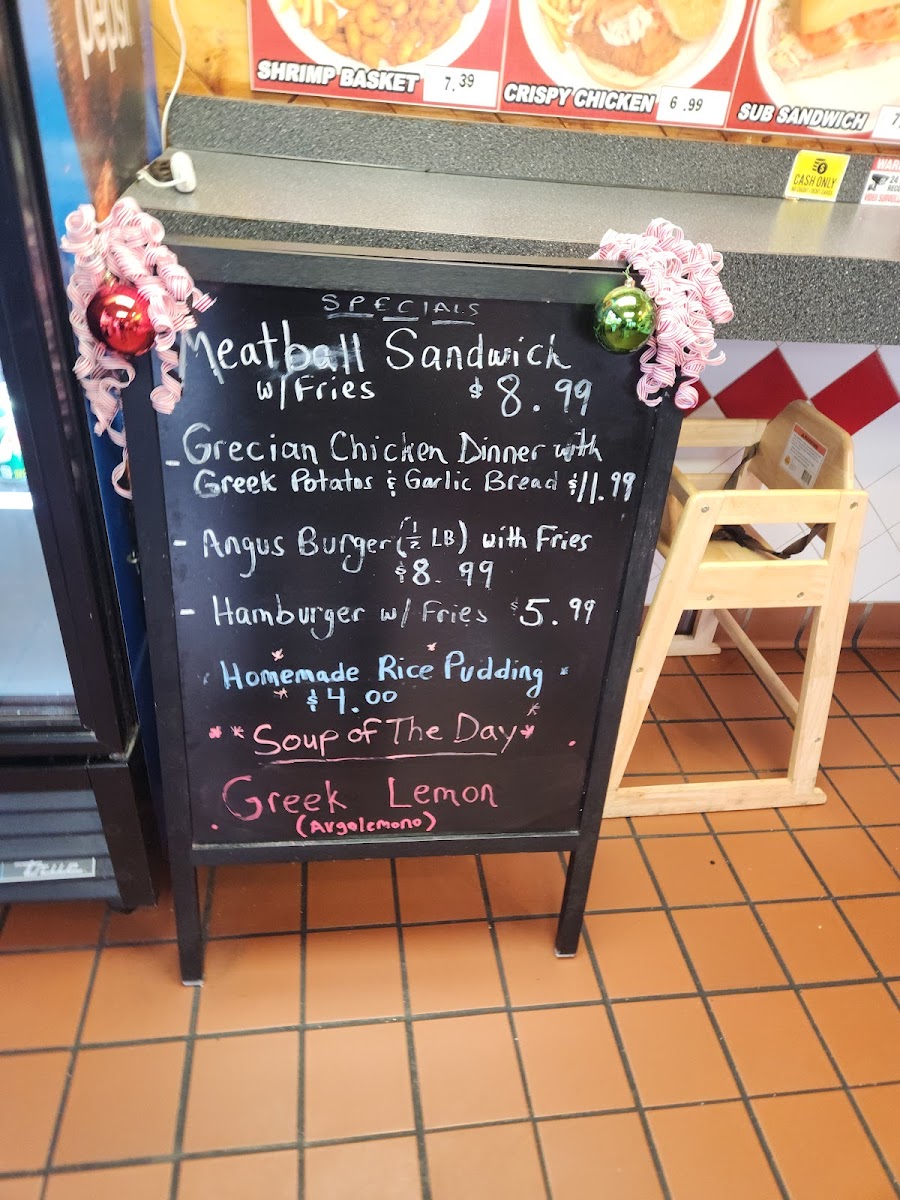 pepsi
SHRIMP BASKET 7.39
CRISPY CHICKEN 6.99
SUB SANDWICH
CASH ONLY
SPECIALS
Meatball Sandwich
w/Fries $8.99
- Grecian Chicken Dinner with
Greek Potatos & Garlic Bread $11.99
- Angus Burger (1/2 LB) with Fries
$8.99
- Hamburger w/ Fries $5.99
Homemade Rice Pudding
$4.00
** Soup of The Day*
Greek Lemon
(Avgolemono)
True